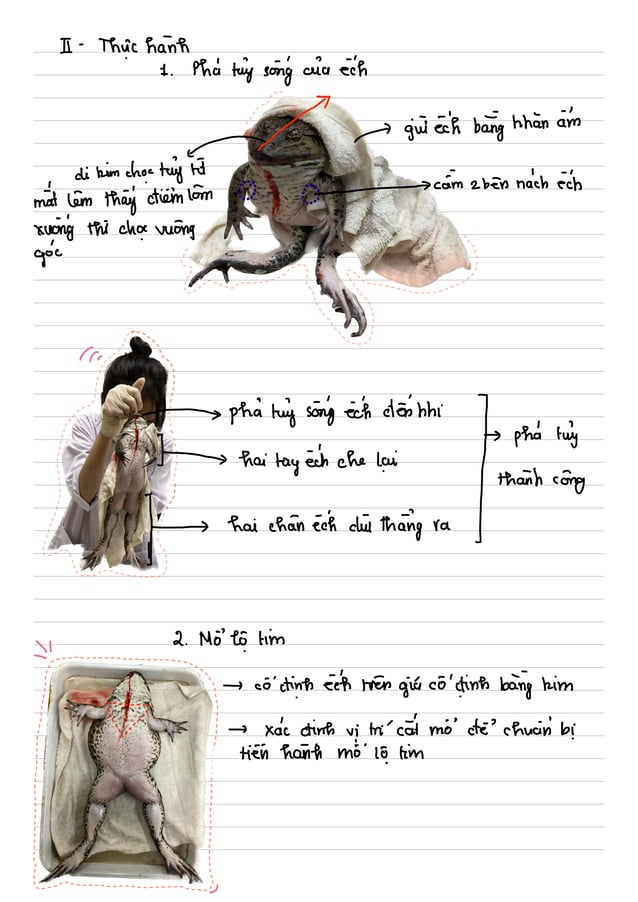 II - Thực hành
1. Phá tuỷ sống của ếch
giữ ếch bằng khăn ẩm
di kim chọc tuỷ từ
mắt lần thấy điểm lõm
xuống thì chọc vuông
góc
cầm 2 bên nách ếch
phá tuỷ sống ếch đến khi
hai tay ếch che lại
hai chân ếch duỗi thẳng ra
phá tuỷ
thành công
2. Mổ lộ tim
→ cố định ếch trên giá cố định bằng kim
→ xác định vị trí cắt mổ để chuẩn bị
tiến hành mổ lộ tim